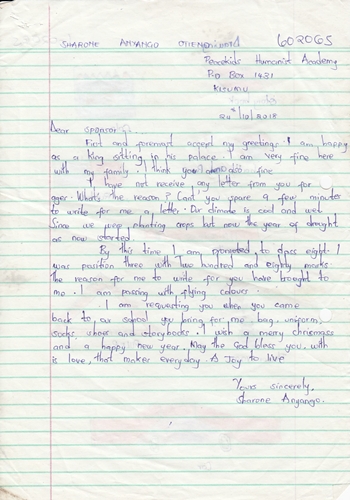 SHARONE ANYANGO OTIENO
602065
Peacekids Humanist Academy
P.o Box 1431
KISUMU
24th/10/2018
Dear sponsor,
First and foremost accept my greetings. I am happy
as a king sitting in his palace. I am very fine here
with my family. I think you are also fine
I have not receive any letter from you for
ager. What's the reason? Can't you spare a few minutes
to write for me a letter. Our climate is cool and wet.
Since we were planting crops but now the year of drought
as now started.
By this time I am promoted to class eight. I
was position three with Two hundred and eighty marks
the reason for me to write for you have brought to
me. I am passing with flying colours.
I am requesting you when you came
back to our school you bring for me bag, uniform,
socks, shoes and storybooks. I wish a merry chrismass
and a happy new year. May the God bless you. with
is love, that makes everyday A Joy to live
Yours sincerely,
Sharone Anyango.